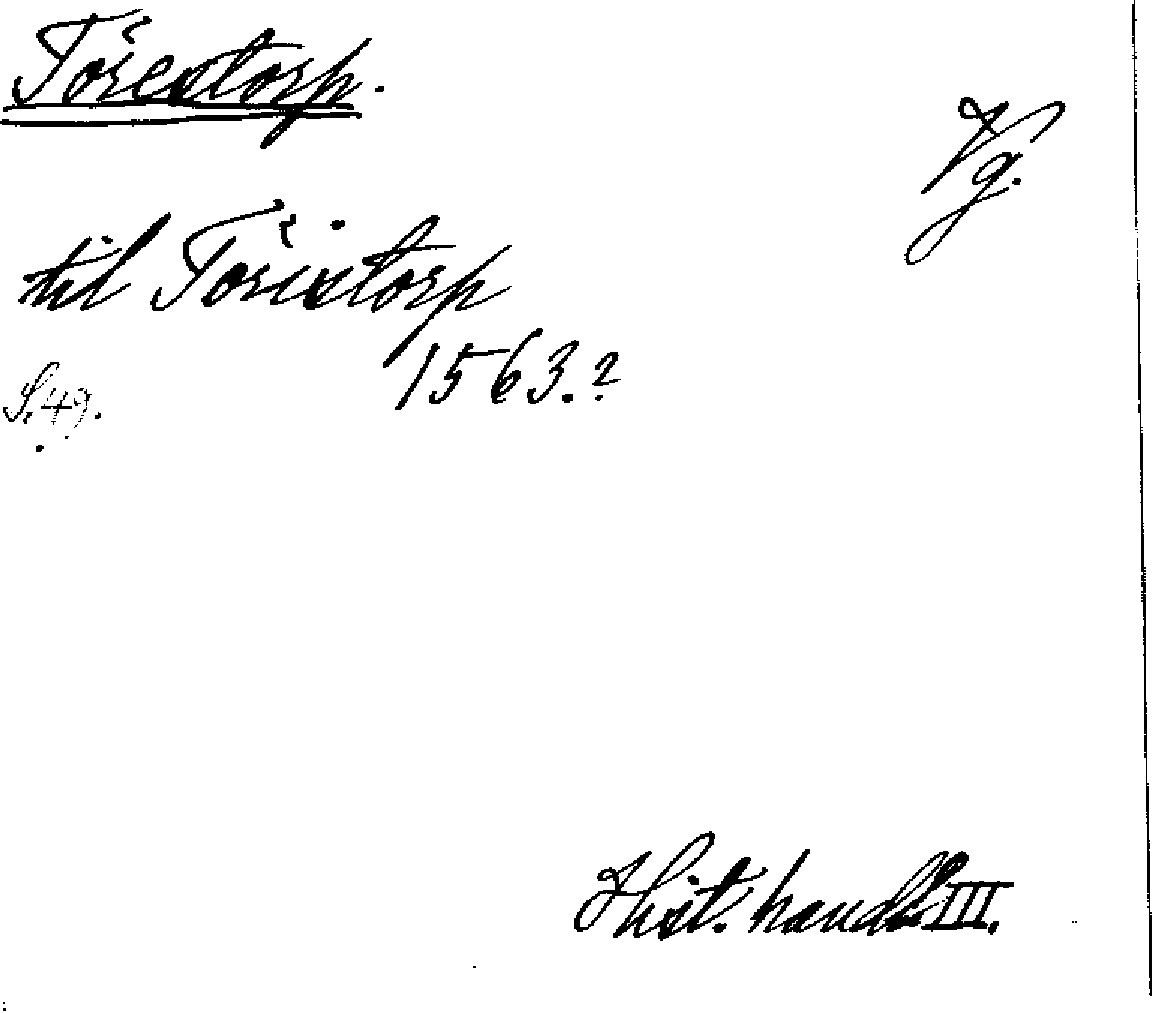 Törestorp.
Vg.
til Töristorp
1563.?
S. 49.
Hist. handl. III.